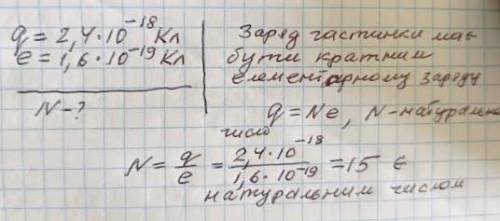 q = 2,4·10⁻¹⁸ Кл
e = 1,6·10⁻¹⁹ Кл
N - ?
Заряд частинки має
бути кратним
елементарному заряду
q = Ne, N - натуральне
число
N = q/e = 2,4·10⁻¹⁸/1,6·10⁻¹⁹ = 15 є
натуральним числом